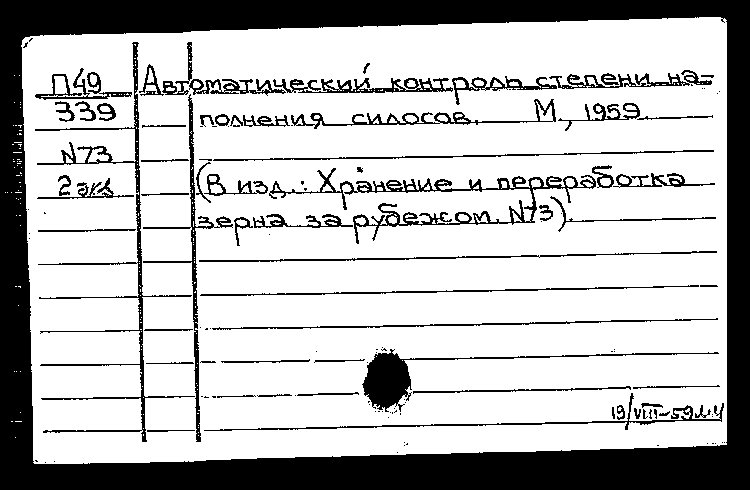 П49 Автоматический контроль степени на-
339 полнения силосов. М., 1959.
N73
2 экз (В изд.: Хранение и переработка
зерна за рубежом. N73).
19/VIII-59